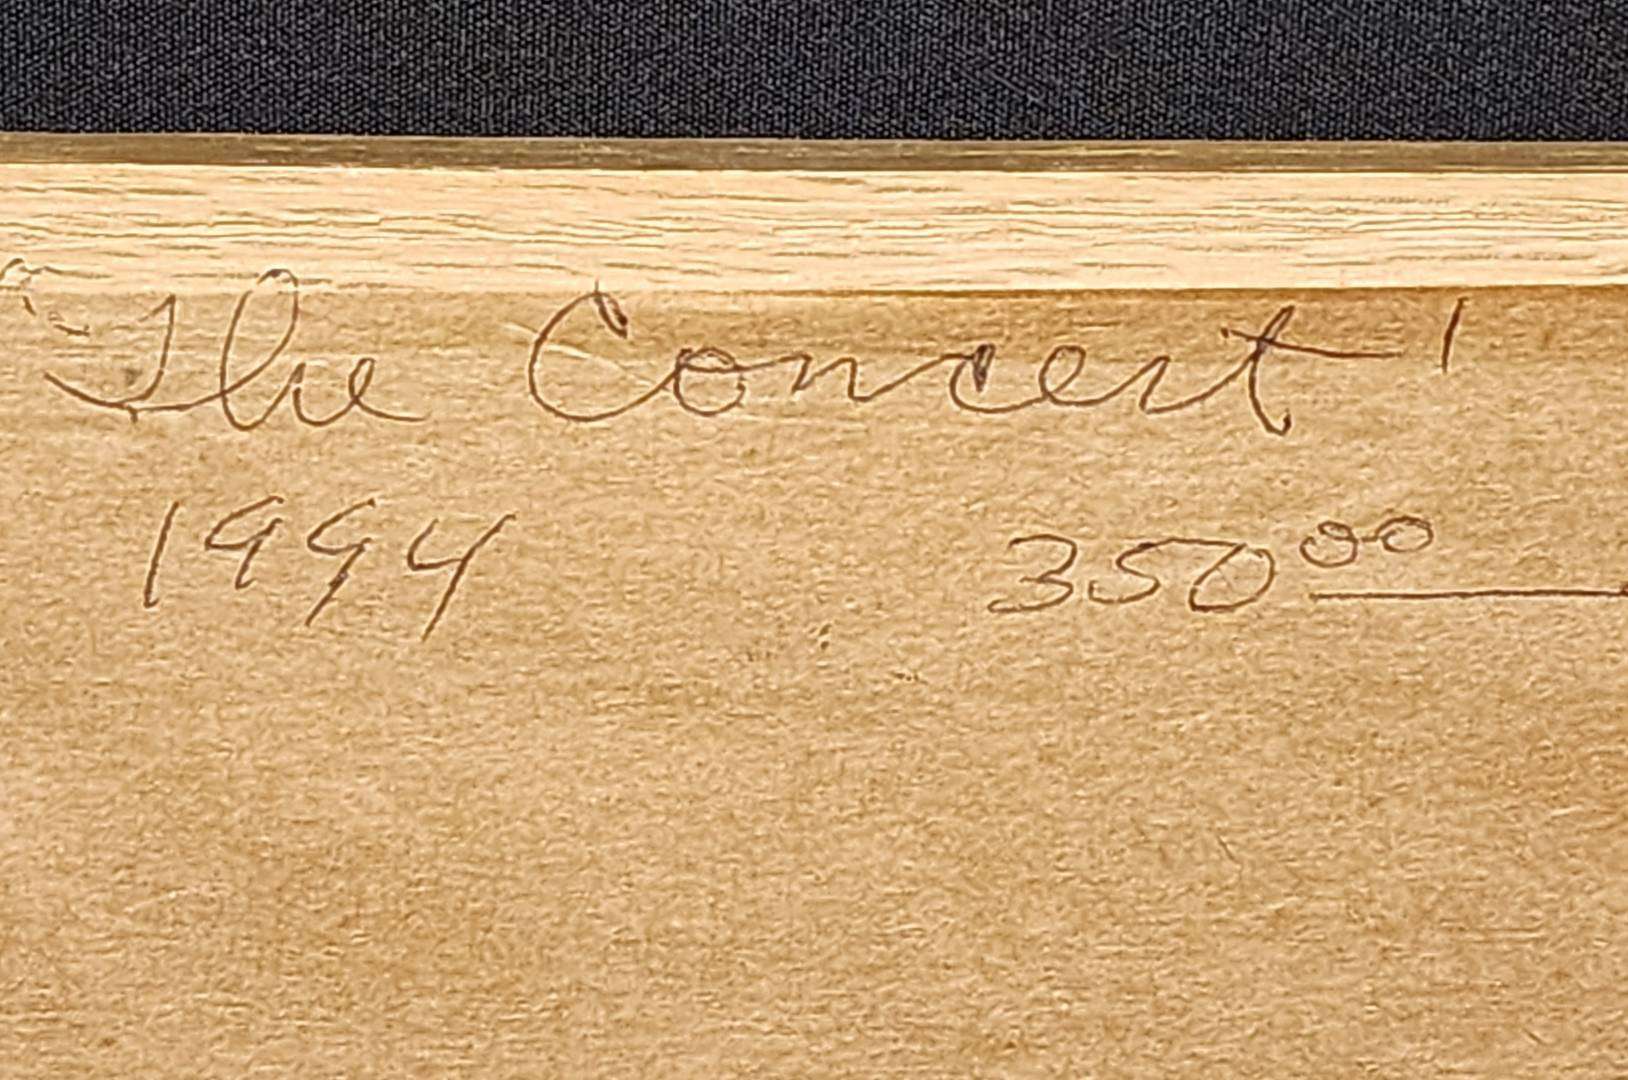 "The Concert'
1994 350⁰⁰